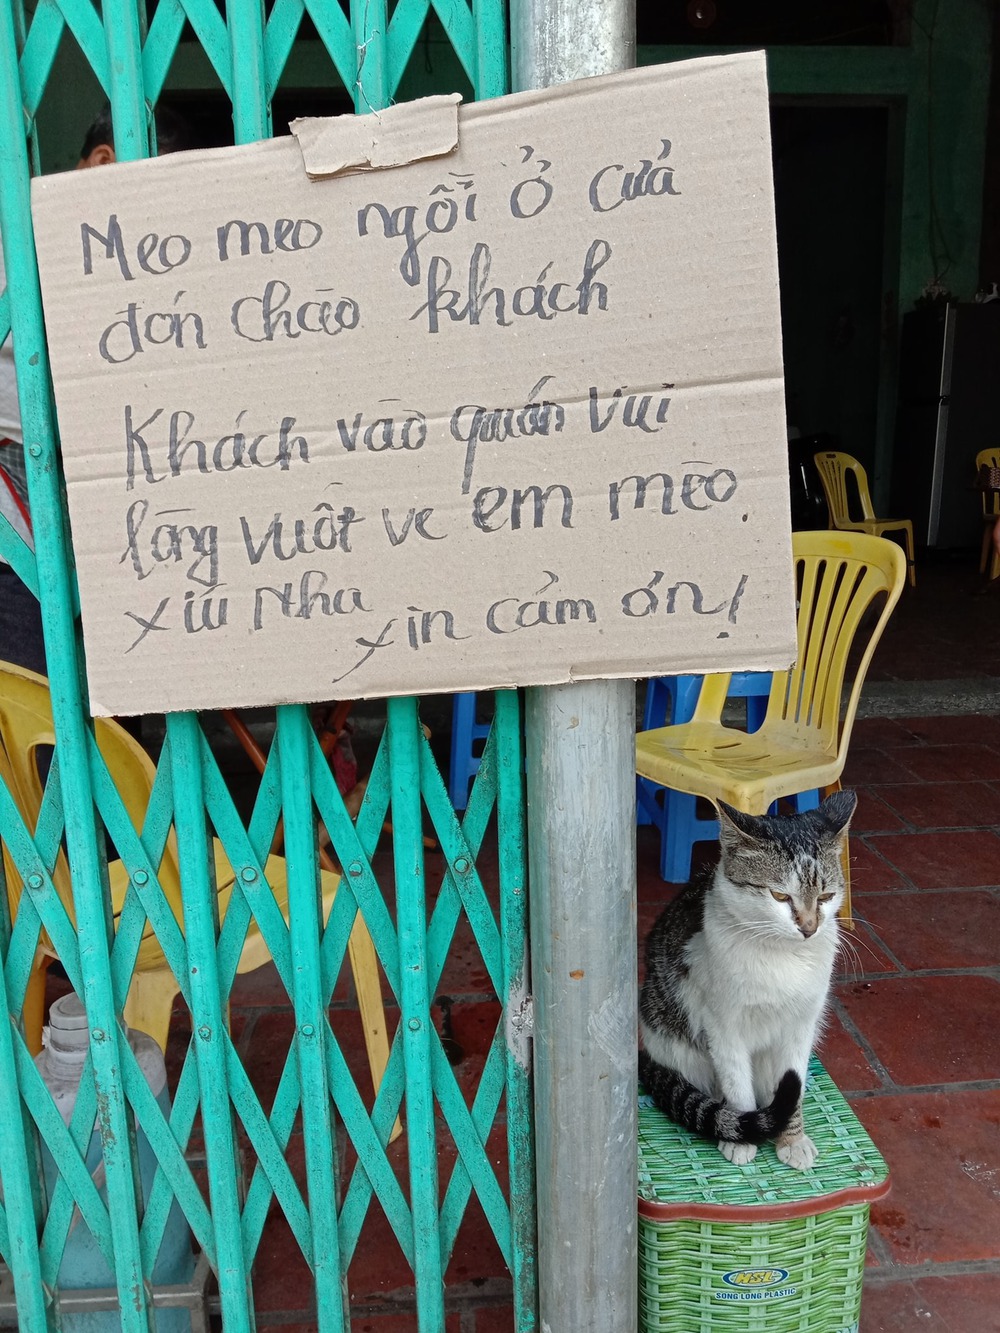 Meo meo ngồi ở cửa
đón chào khách
Khách vào quán vui
lòng vuốt ve em mèo
xíu Nha
xin cảm ơn!
HSL
SONG LONG PLASTIC